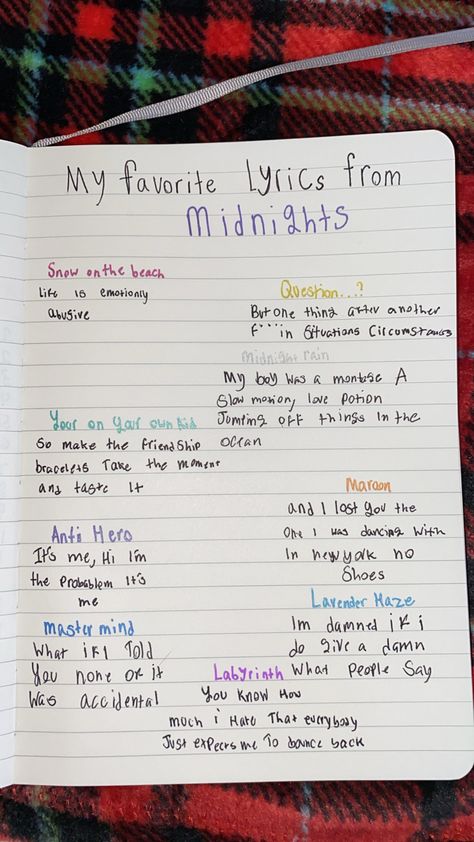 My favorite Lyrics from
Midnights
Snow on the beach
Life is emotionly
abusive
Question...?
But one thing after another
F***in Situations Circumstances
midnight rain
My boy was a montage A
Slow motion, love potion
Jumping off things In the
ocean
Your on Your own kid
So make the friendship
bracelets Take the moment
and taste It
Maroon
and I lost you the
One I was dancing with
In newyork no
Shoes
Anti Hero
It's me, Hi I'm
the Probablem It's
me
Lavender Haze
Im damned if i
do give a damn
What People Say
master mind
What if I Told
You none of it
Was accidental
Labyrinth
You know How
much i Hate That everybody
Just expects me To bounce back